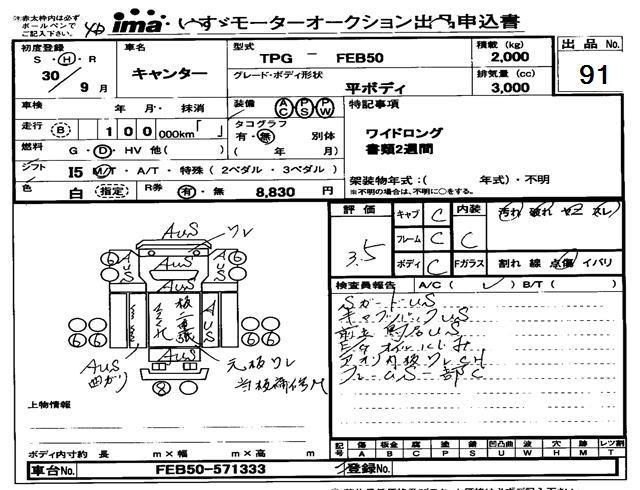 ※赤太枠内は必ず
ボールペンで
ご記入下さい。
ima いすゞモーターオークション出品申込書
初度登録
S・H・R
30/9月
車名
キャンター
型式
TPG - FEB50
グレード・ボディ形状
平ボディ
積載 (kg)
2,000
排気量 (cc)
3,000
出品No.
91
車検 年 月・抹消
装備 AC PS PW
特記事項
ワイドロング
書類2週間
走行 B 100 000km「 」
タコグラフ
有・無 別体
( 年 月)
燃料 G・D・HV 他( )
シフト I5 M/T・A/T・特殊(2ペダル・3ペダル)
架装物年式:( 年式)・不明
※不明の場合は、不明に○をする。
色 白 指定 R券 有・無 8,830 円
評価
3.5
キャブ C
フレーム C
ボディ C
内装 C
Fガラス
汚れ 破れ ヤニ スレ
割れ 線 点傷 イバリ
検査員報告 A/C( ✓ )B/T( )
SガードUS
キャブバックUS
E/Gオイルにじみ
アオリ内板ワレCH
フレームUS一部C
AuS ワレ
AuS
AuS
AuS
AuS
板二重張
AuS
AuS
曲がり
元板ワレ
6 6
6 6
6 6
8
上物情報
ボディ内寸約 長 m×幅 m×高 m
記号 傷 板金 腐 塗 錆 凹凸曲 波 穴 跡 レツ割
A B C P S U W H M T
車台No. FEB50-571333
登録No.